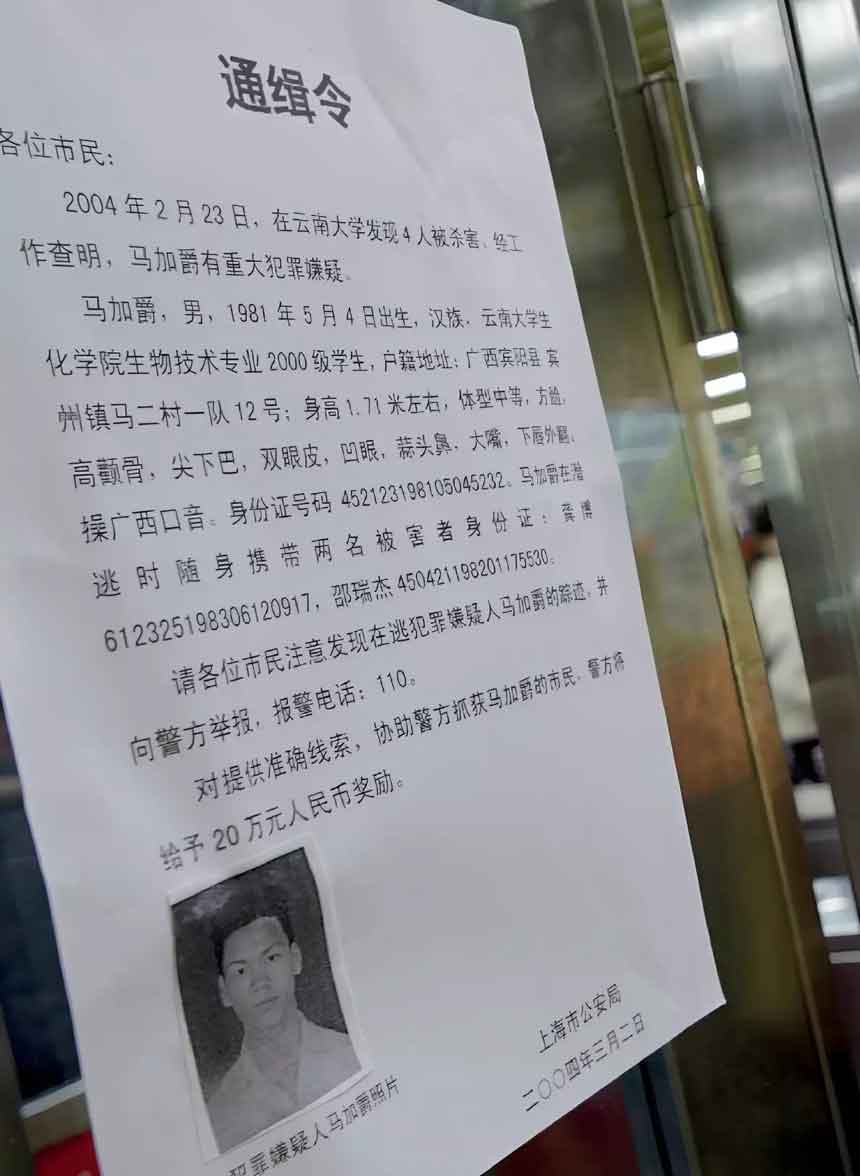 通缉令
各位市民：
2004年2月23日，在云南大学发现4人被杀害，经工
作查明，马加爵有重大犯罪嫌疑。
马加爵，男，1981年5月4日出生，汉族，云南大学生
化学院生物技术专业2000级学生，户籍地址：广西宾阳县宾
州镇马二村一队12号；身高1.71米左右，体型中等，方脸，
高颧骨，尖下巴，双眼皮，凹眼，蒜头鼻，大嘴，下唇外翻，
操广西口音。身份证号码452123198105045232。马加爵在潜
逃时随身携带两名被害者身份证：龚博
612325198306120917，邵瑞杰450421198201175530。
请各位市民注意发现在逃犯罪嫌疑人马加爵的踪迹，并
向警方举报，报警电话：110。
对提供准确线索，协助警方抓获马加爵的市民，警方将
给予20万元人民币奖励。
犯罪嫌疑人马加爵照片
上海市公安局
二〇〇四年三月二日